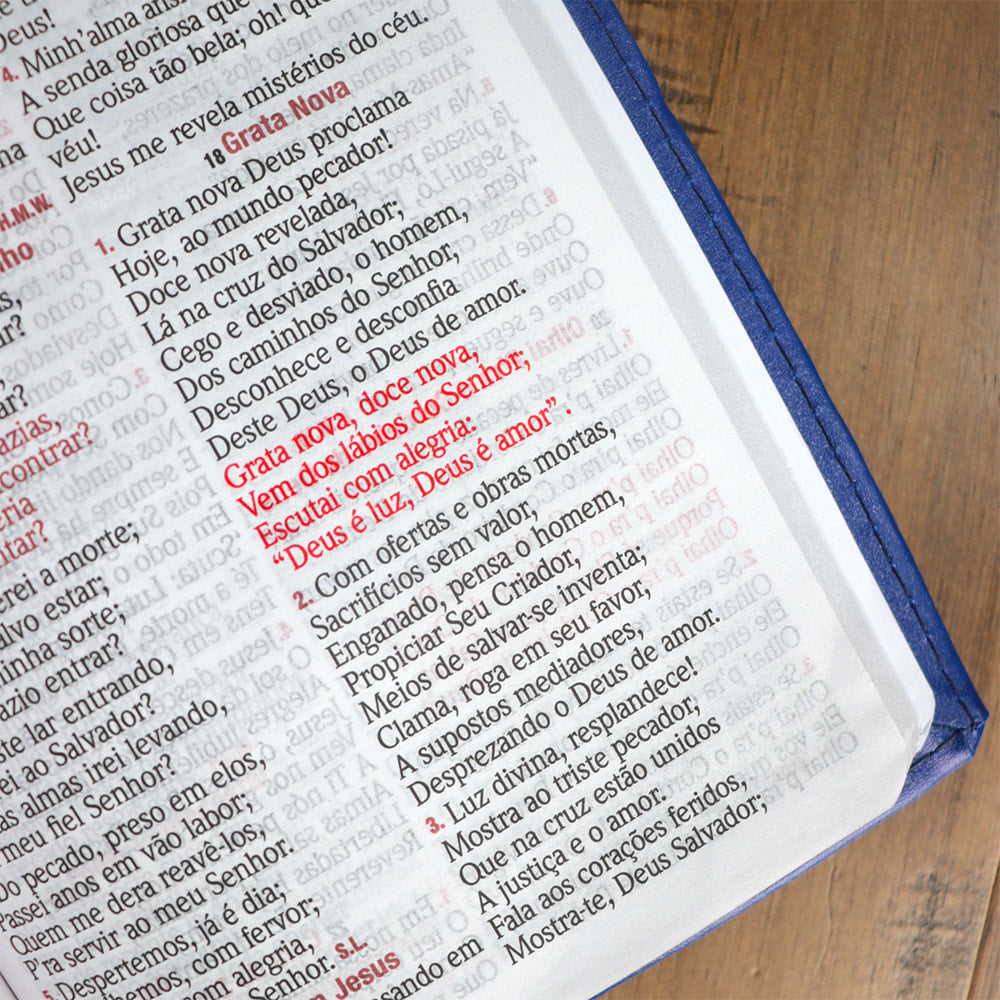 Deus!
4. Minh'alma
A senda gloriosa que
Que coisa tão bela; oh! que
véu!
Jesus me revela mistérios do céu.
18 Grata Nova
1. Grata nova Deus proclama
Hoje, ao mundo pecador!
Doce nova revelada,
Lá na cruz do Salvador;
Cego e desviado, o homem,
Dos caminhos do Senhor,
Desconhece e desconfia
Deste Deus, o Deus de amor.
Grata nova, doce nova,
Vem dos lábios do Senhor;
Escutai com alegria:
“Deus é luz, Deus é amor”.
2. Com ofertas e obras mortas,
Sacrifícios sem valor,
Enganado, pensa o homem,
Propiciar Seu Criador,
Meios de salvar-se inventa;
Clama, roga em seu favor,
A supostos mediadores,
Desprezando o Deus de amor.
3. Luz divina, resplandece!
Mostra ao triste pecador,
Que na cruz estão unidos
A justiça e o amor.
Fala aos corações feridos,
Mostra-te, Deus Salvador;
H.M.W.
a morte;
estar;
sorte;
entrar?
lar entrando,
ao Salvador?
almas irei levando,
meu fiel Senhor?
Do pecado, preso em elos,
Passei anos em vão labor;
Quem me dera reavê-los,
P'ra servir ao meu Senhor.
5. Despertemos, já é dia;
com fervor;
alegria,
Senhor. S.L.
Jesus
em